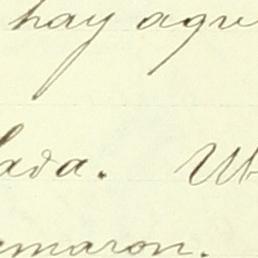 hay agu
lada. Ub
maron.